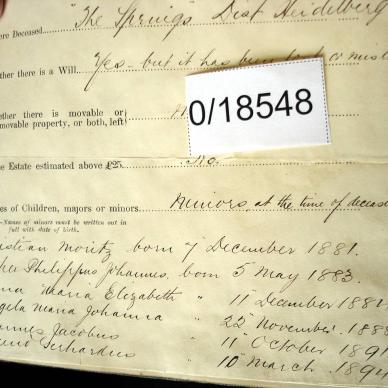 ere Deceased "The Springs" Dist Heidelberg
ther there is a Will. Yes - but it has been lost or misl
0/18548
ether there is movable or
movable property, or both, left
e Estate estimated above £25. No.
es of Children, majors or minors. Minors at the time of decease
—Names of minors must be written out in
full with date of birth.
istian Moritz born 7 December 1881.
Philippus Johannes, born 5 May 1883.
Maria Elizabeth " 11 December 188
gela Maria Johanna " 22 November 188
annes Jacobus " 11 October 189
Gerhardus " 10 March 189